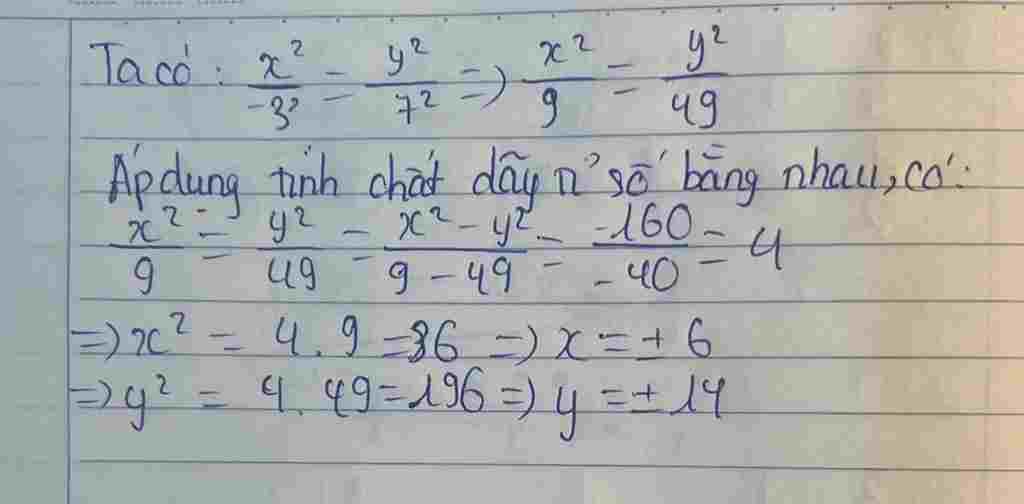 Ta có: x²/-3² = y²/7² => x²/9 = y²/49
Áp dụng tính chất dãy tỉ số bằng nhau, có:
x²/9 = y²/49 = x² - y²/9 - 49 = -160/-40 = 4
=> x² = 4.9 = 36 => x = ± 6
=> y² = 4.49 = 196 => y = ± 14